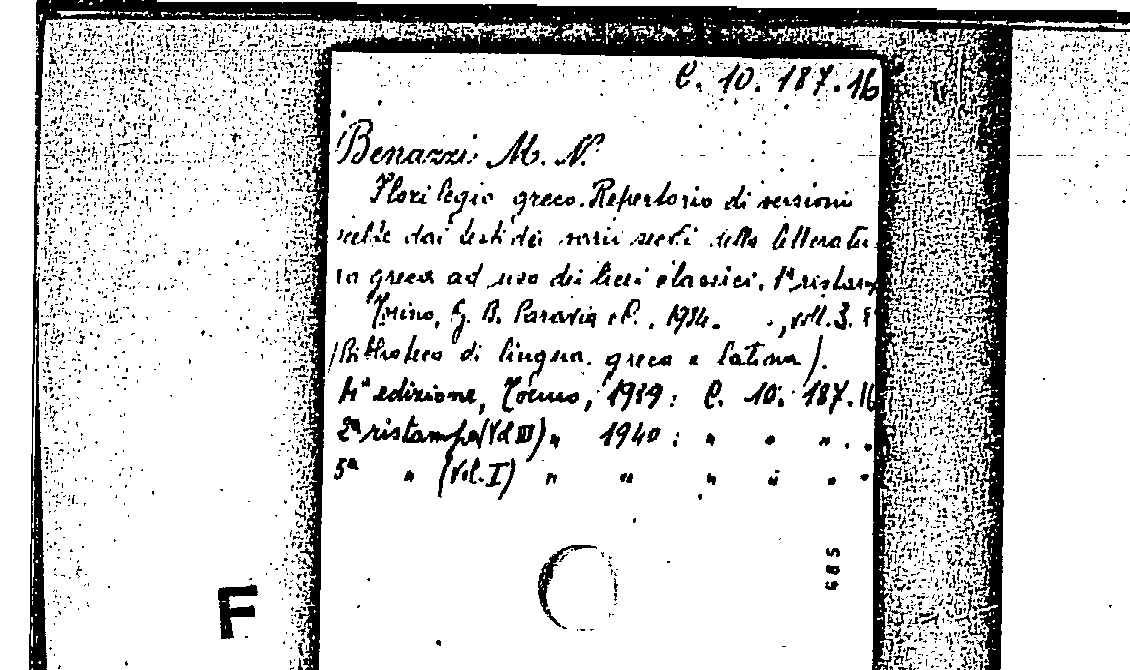 C. 10. 187.16
Benazzi M. N.
Florilegio greco. Repertorio di versioni
scelte dai testi dei varii secoli della letteratu-
ra greca ad uso dei licei classici. 1ª ristam
Torino, G. B. Paravia e C., 1934. , voll. 3.
(Biblioteca di lingua greca e latina).
4ª edizione, Torino, 1939: C. 10. 187.16
2ª ristampa (Vol III) " 1940: " " " "
5ª " (Vol. I) " " " " " "
685
F